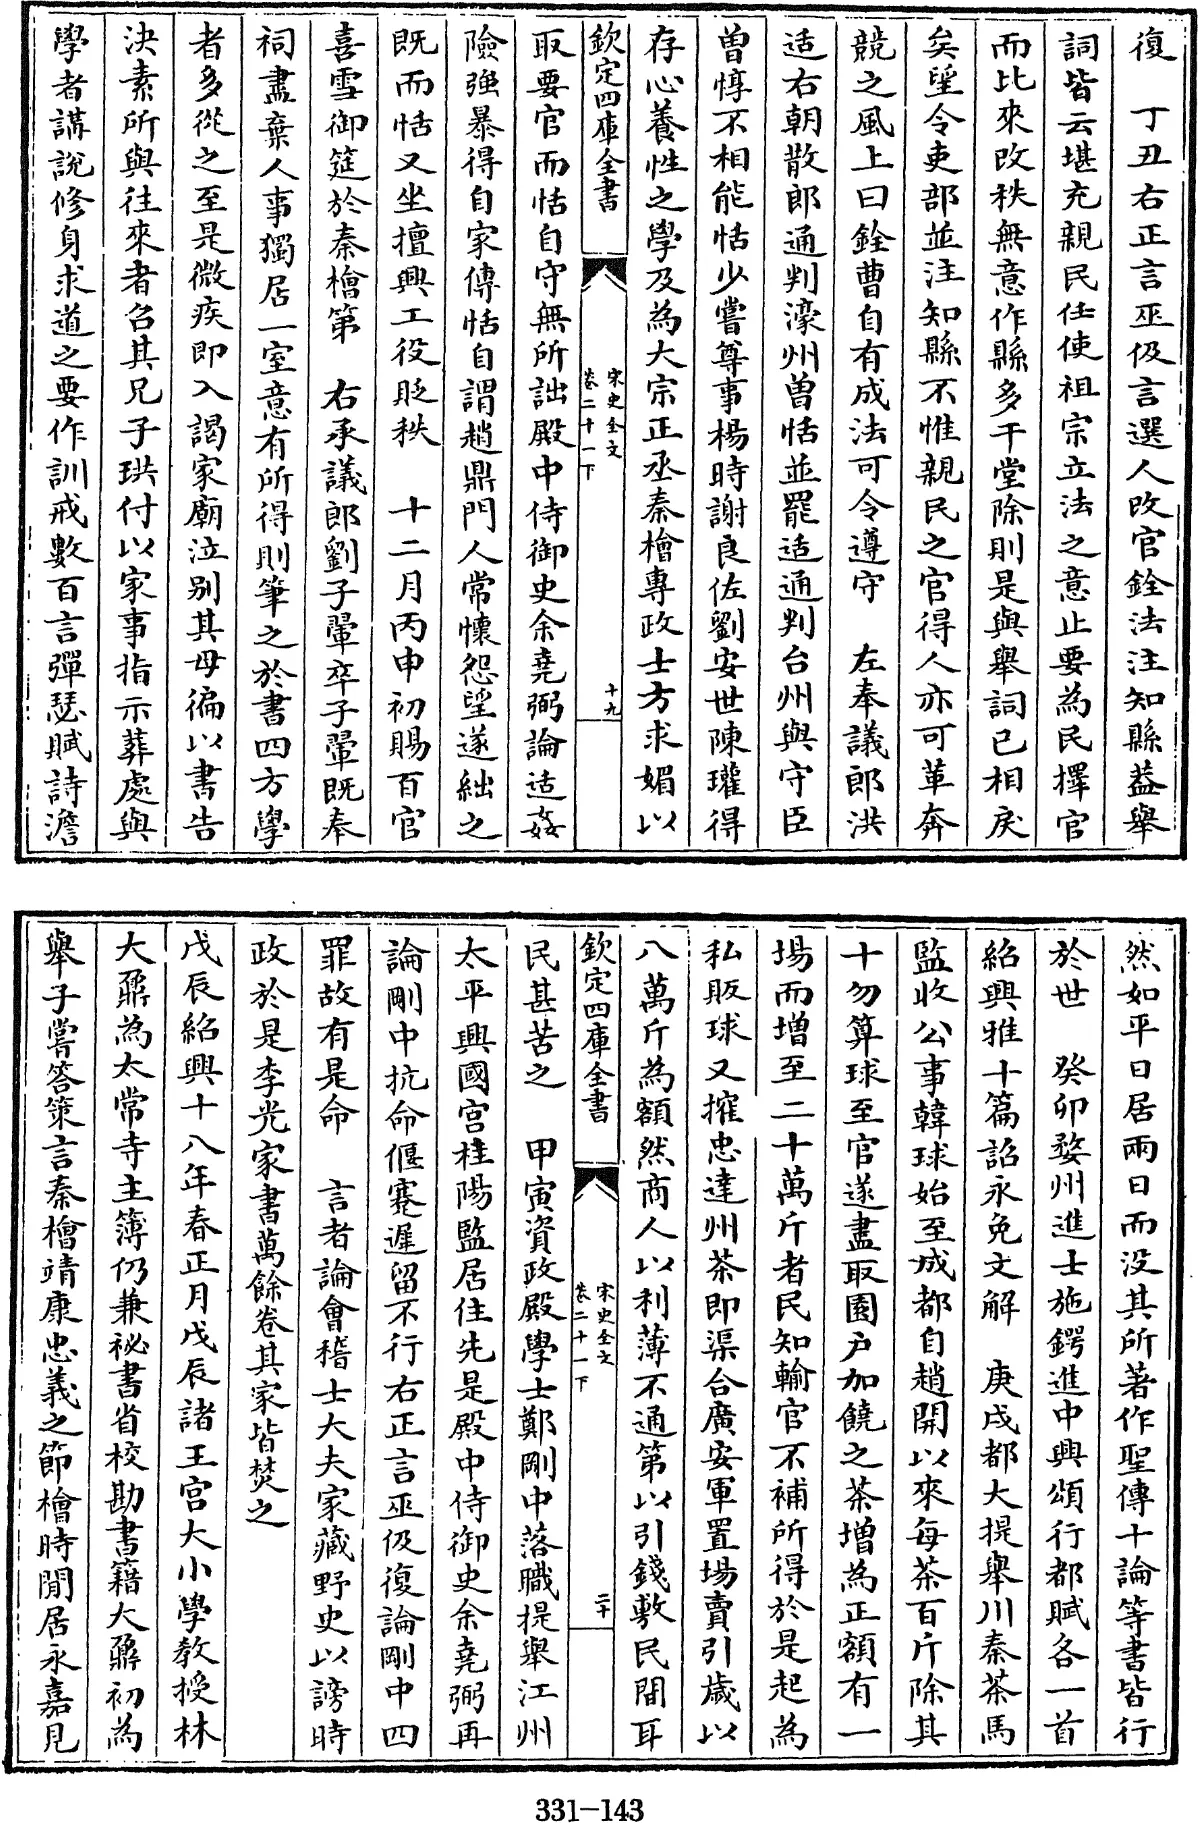 復　丁丑右正言巫伋言選人改官銓法注知縣葢舉
詞皆云堪充親民任使祖宗立法之意止要為民擇官
而比來改秩無意作縣多干堂除則是與舉詞已相戾
矣望令吏部並注知縣不惟親民之官得人亦可革奔
競之風上曰銓曹自有成法可令遵守　左奉議郎洪
适右朝散郎通判濠州曽恬並罷适通判台州與守臣
曽惇不相能恬少嘗尊事楊時謝良佐劉安世陳瓘得
存心養性之學及為大宗正丞秦檜專政士方求媚以
欽定四庫全書
宋史全文
卷二十一下
十九
取要官而恬自守無所詘殿中侍御史余堯弼論适姦
險強暴得自家傳恬自謂趙鼎門人常懷怨望遂絀之
既而恬又坐擅興工役貶秩　十二月丙申初賜百官
喜雪御筵於秦檜第　右承議郎劉子翬卒子翬既奉
祠盡棄人事獨居一室意有所得則筆之於書四方學
者多從之至是微疾即入謁家廟泣别其母徧以書告
決素所與往來者召其兄子珙付以家事指示葬處與
學者講說修身求道之要作訓戒數百言彈瑟賦詩澹
然如平日居兩日而没其所著作聖傳十論等書皆行
於世　癸卯婺州進士施鍔進中興頌行都賦各一首
紹興雅十篇詔永免文解　庚戌都大提舉川秦茶馬
監收公事韓球始至成都自趙開以來每茶百斤除其
十勿算球至官遂盡取園户加饒之茶增為正額有一
場而增至二十萬斤者民知輸官不補所得於是起為
私販球又搉忠達州茶即渠合廣安軍置場賣引歲以
八萬斤為額然商人以利薄不通第以引錢敷民間耳
欽定四庫全書
宋史全文
卷二十一下
二十
民甚苦之　甲寅資政殿學士鄭剛中落職提舉江州
太平興國宮桂陽監居住先是殿中侍御史余堯弼再
論剛中抗命偃蹇遲留不行右正言巫伋復論剛中四
罪故有是命　言者論會稽士大夫家藏野史以謗時
政於是李光家書萬餘卷其家皆焚之
戊辰紹興十八年春正月戊辰諸王宮大小學教授林
大鼐為太常寺主簿仍兼祕書省校勘書籍大鼐初為
舉子嘗答策言秦檜靖康忠義之節檜時閒居永嘉見
331-143